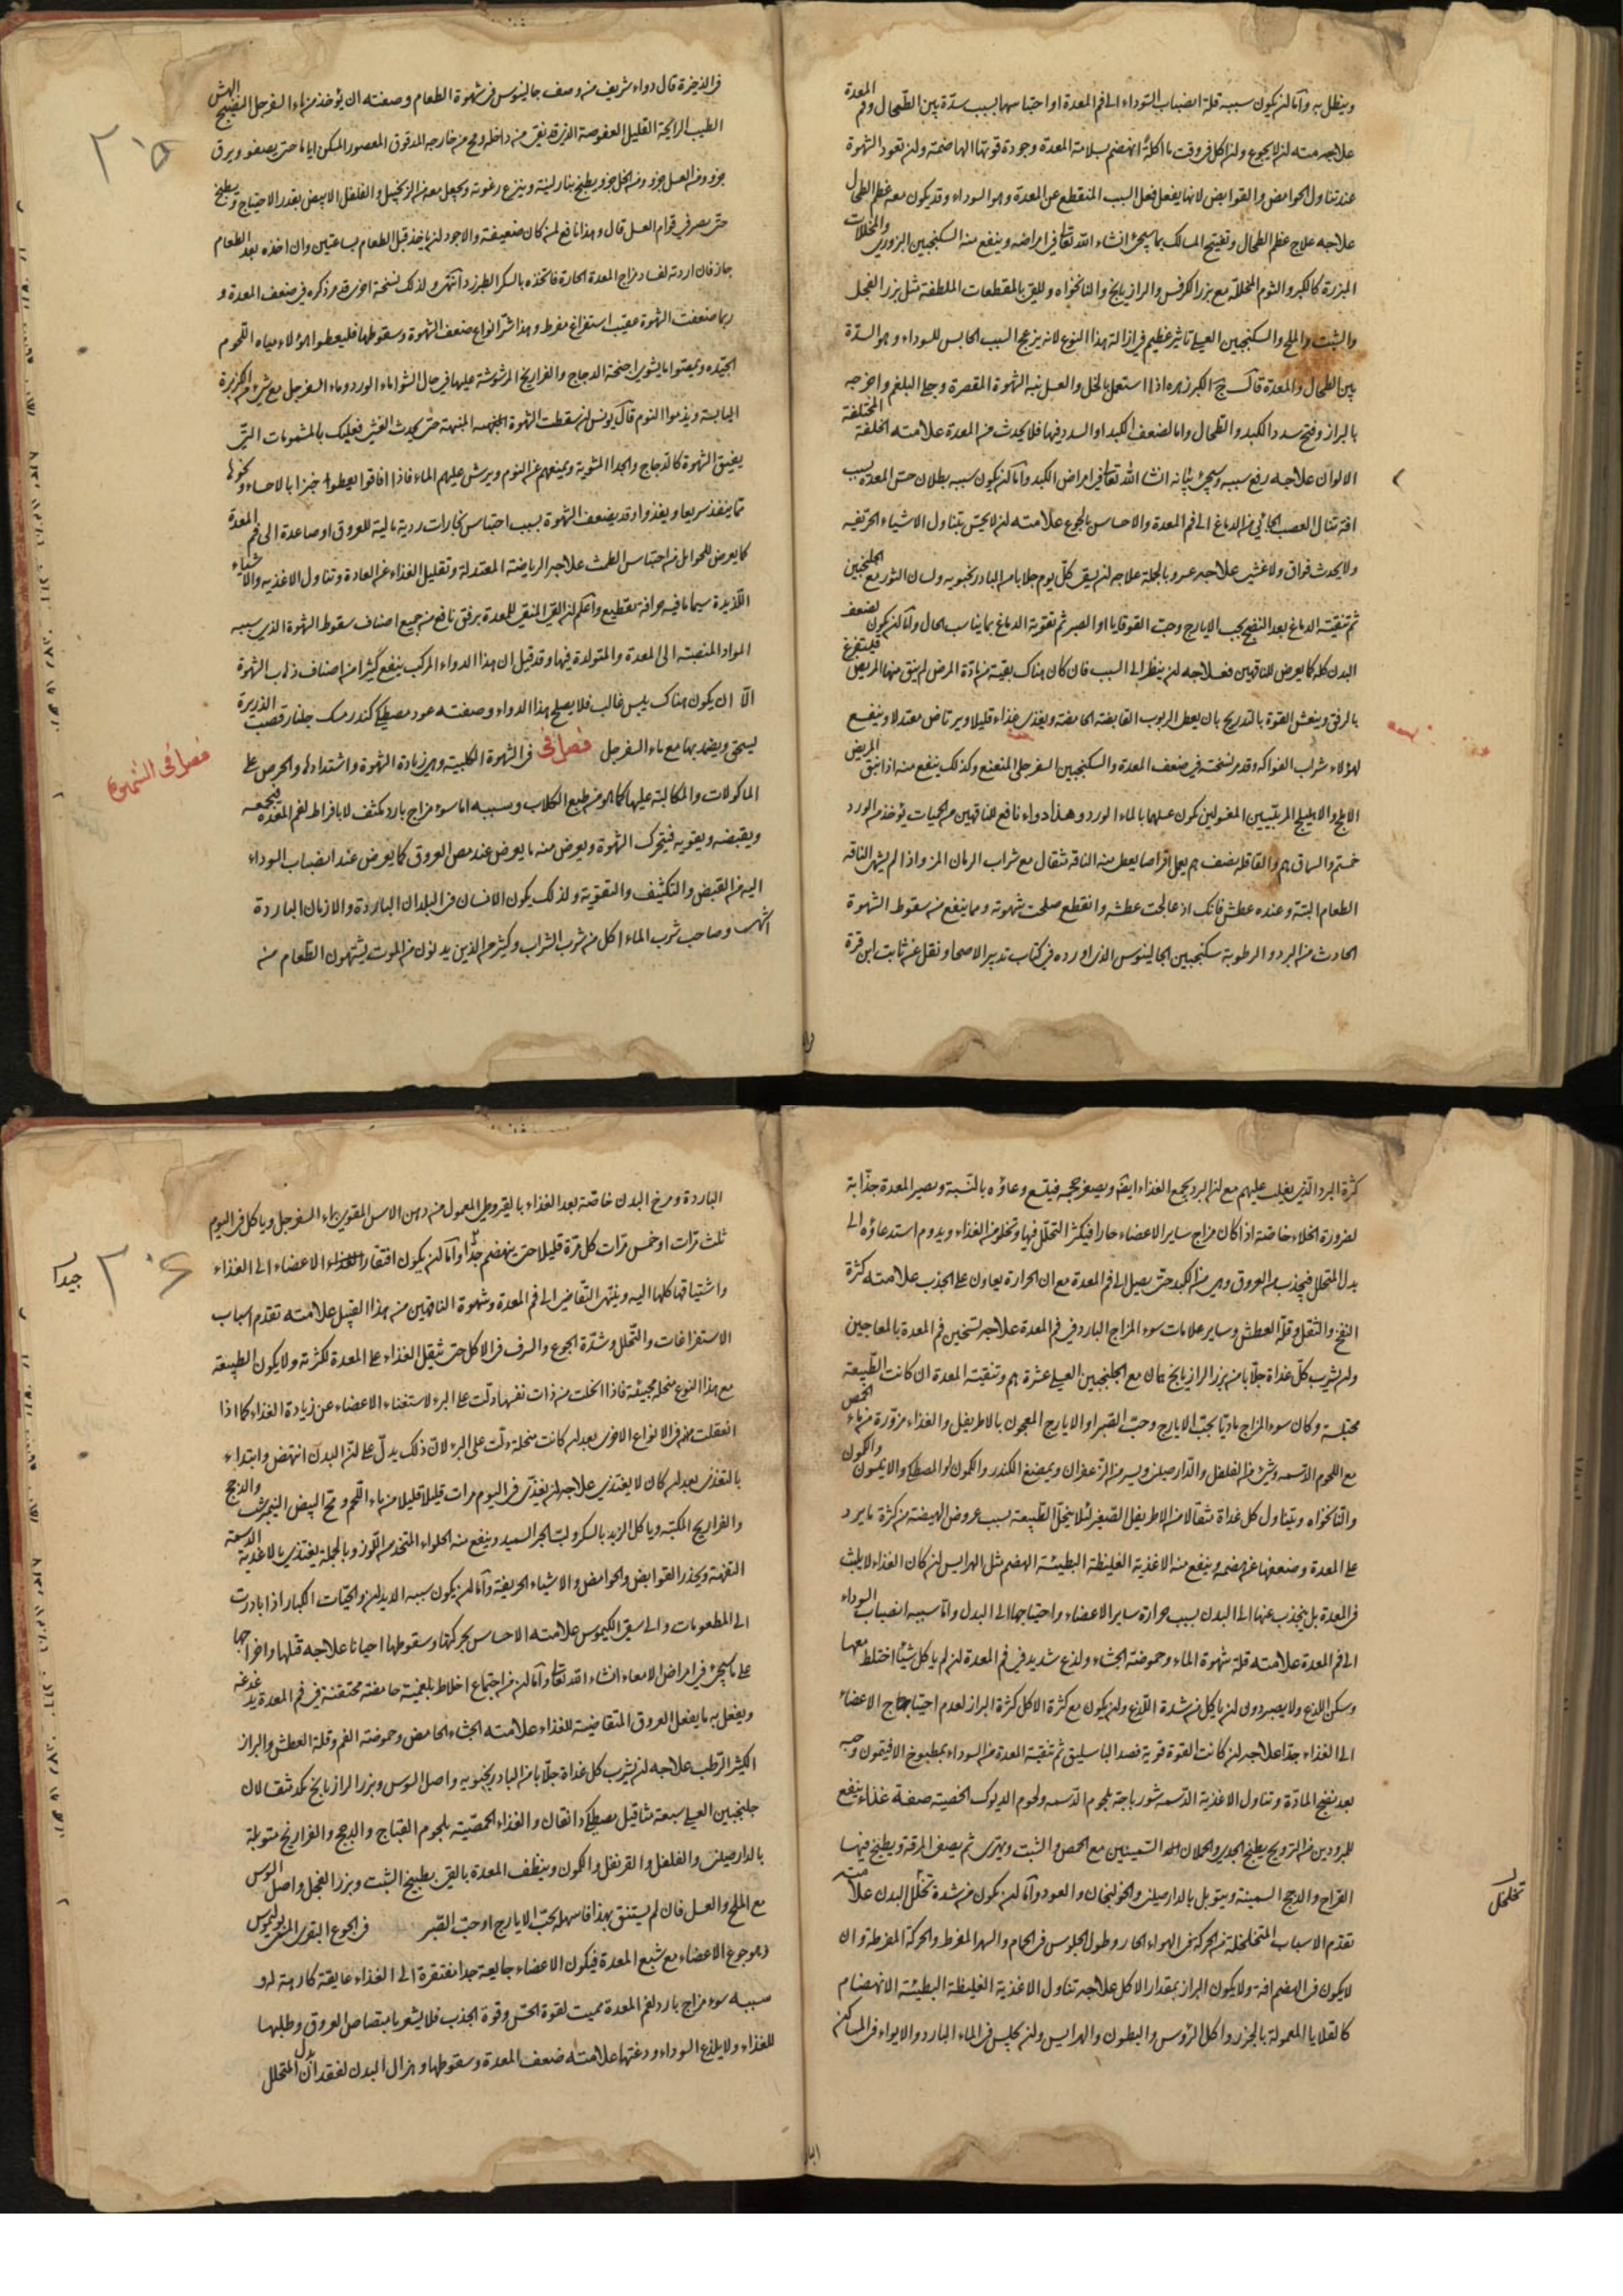 وينظل به وأما لن يكون سببه قلة انصباب السوداء الى فم المعدة او احتباسها بسبب سدة بين الطحال وفم المعدة
علاجه منه لن لا يجوع ولن اكل فى وقت ما اكله انهضم بسلامة المعدة وجودة قوتها الهاضمة ولن تعود الشهوة
عند تناول الحوامض والقوابض لانها يفعل فعل السبب المنقطع عن المعدة وهو السوداء وقد يكون معه عظم الطحال
علاجه علاج عظم الطحال وتفتيح المسالك بما سيجئ انشاء الله تعا فى امراضه وينفع منه السكنجبين البزورى والمخللات
المبزرة كالكبر والثوم المخللة مع بزر الكرفس والرازيانج والنانخواه وللقئ بالمقطعات الملطفة مثل بزر الفجل
والشبت والملح والسكنجبين العسلى تاثير عظيم فى ازالة هذا النوع لانه يزعج السبب الحابس للسوداء وهو السدة
بين الطحال والمعدة قال ج الكبر زهره اذا استعمل بالخل والعسل نبه الشهوة المقصرة وجلا البلغم واخرجه
بالبراز وفتح سدد الكبد والطحال واما لضعف الكبد او السدد فيها فلا يحدث من المعدة علامته الخلفة المختلفة
الالوان علاجه رفع سببه وسيجئ بيانه انشا الله تعا فى امراض الكبد وأما لن يكون سببه بطلان حس المعدة بسبب
افة تنال العصب الجائى من الدماغ الى فم المعدة والاحساس بالجوع علامته لن لا يحس بتناول الاشياء الحريفة
ولا يحدث فواق ولا غثى علاجه عسر وبالجملة علاجه لن يسقى كل يوم جلابا من البادرنجبويه ولسان الثور مع الجلنجبين
ثم تنقية الدماغ بعد النضج بحب الايارج وحب القوقايا او الصبر ثم تقوية الدماغ بما يناسب الحال وأما لن يكون لضعف
البدن كله كما يعرض للناقهين فعلاجه لن ينظر الى السبب فان كان هناك بقية من مادة المرض لم ينق منها المريض فليستفرغ
بالرفق وينعش القوة بالتدريج بان يعطى الربوب القابضة الحامضة ويغذى غذاء قليلا ويرتاض معتدلا وينفع
لهؤلاء شراب الفواكه وقد مر نسخته فى ضعف المعدة والسكنجبين السفرجلى المنعنع وكذلك ينفع منه اذا نقى المريض
الاملج والاهليلج المربيين المغسولين يكون عسلهما بالماء الورد وهذا دواء نافع للناقهين من الحميات يؤخذ من الورد
خمسة والسماق والقاقلة نصف يعمل اقراصا يعطى منه الناقه مثقال مع شراب الرمان المز واذا لم يشته الناقه
الطعام البتة وعنده عطش فانك اذ عالجت عطشه وانقطع صلحت شهوته ومما ينفع من سقوط الشهوة
الحادث من البرد والرطوبة سكنجبين الجالينوس الذى اورده فى كتاب تدبير الاصحا ونقل عن ثابت ابن قرة
فى الذخيرة قال دواء شريف من وصف جالينوس فى شهوة الطعام وصفته ان يؤخذ من ماء السفرجل النضيج الهش
الطيب الرائحة القليل العفوصة الذى قد نقى من داخله ومح من خارجه المدقوق المعصور المسكن اياما حتى يصفو ويرق
جزو ومن العسل جزو ومن الخل جزو يطبخ بنار لينة وينزع رغوته ويجعل معه من الزنجبيل والفلفل الابيض بقدر الاحتياج ويطبخ
حتى يصير فى قوام العسل قال وهذا نافع لمن كان ضعيفة والاجود لن ياخذ قبل الطعام بساعتين وان اخذه بعد الطعام
جاز فان اردته لفساد مزاج المعدة الحارة فاتخذه بالسكر الطبرزد انتهى ولذلك نسخة اخرى قد مر ذكره فى ضعف المعدة و
ربما ضعفت الشهوة عقيب استفراغ مفرط وهذا شر انواع ضعف الشهوة وسقوطها فليعطوا هؤلاء مياه اللحوم
الجيده ويمصوا ما يشوى اجنحة الدجاج والفراريخ المرشوشة عليها فى حال الشواء ماء الورد وماء السفرجل مع شئ من الكزبرة
اليابسة ويذموا النوم قال يونس لن سقطت الشهوة حتى يحدث الغشى فعليك بالمشمومات التى
يفيق الشهوة كالدجاج والجدا المشوية ويمنعهم عن النوم ويرش عليهم الماء فاذا افاقوا يعطوا خبزا بالاحساء ونحوها
مما ينفذ سريعا ويغذوا وقد يضعف الشهوة بسبب احتباس بخارات ردية مالية للعروق او صاعدة الى فم المعدة
كما يعرض للحوامل من احتباس الطمث علاجه الرياضة المعتدلة وتقليل الغذاء عن العادة وتناول الاغذيه والاشياء
اللذيذة سيما ما فيه حرافة تقطيع واعلم لن القئ المنقى للمعدة برفق نافع من جميع اصناف سقوط الشهوة الذى سببه
المواد المنصبة الى المعدة والمتولدة فيها وقد قيل ان هذا الدواء المركب ينفع كثيرا من اصناف ذهاب الشهوة
الا ان يكون هناك يبس غالب فلا يصلح هذا الدواء وصفته عود مصطكى كندر مسك جلنار قصب الذريرة
يسحق ويضمد بها مع ماء السفرجل فصل فى فى الشهوة الكلبية وهى زيادة الشهوة واشتدادها والحرص على
الماكولات والمكالبة عليها كما هو من طبع الكلاب وسببه اما سوء مزاج بارد مكثف لا بافراط لفم المعدة فيجمعه
ويقبضه ويقويه فيتحرك الشهوة ويعرض منه ما يعرض عند مص العروق كما يعرض عند انصباب السوداء
اليه من القبض والتكثيف والتقوية ولذلك يكون الانسان فى البلدان الباردة والازمان الباردة
اشهى وصاحب شرب الماء اكل من شرب الشراب وكثير من الذين يدنون من الموت يشتهون الطعام منه
فصل فى الشهوة
٢٠٥
كثرة البرد الذى يغلب عليهم مع لن البرد يجمع الغذاء ايضا ويصغر حجمه فيتسع وعاؤه بالنسبة ويصير المعدة جذابة
لضرورة الخلاء خاصة اذا كان مزاج ساير الاعضاء حارا فيكثر التحلل فيها وتخلو من الغذاء ويدوم استدعاؤه الى
بدل المتحلل فيجذب من العروق وهى من الكبد حتى يصل الى فم المعدة مع ان الحرارة يعاون على الجذب علامته كثرة
النفخ والثقل وقلة العطش وساير علامات سوء المزاج البارد فى فم المعدة علاجه تسخين فم المعدة بالمعاجين
ولن يشرب كل غداة جلابا من بزر الرازيانج مع الجلنجبين العسلى عشرة وتنقية المعدة ان كانت الطبيعة
محتبسة وكان سوء المزاج ماديا بحب الايارج وحب الصبر او الايارج المعجون بالاطريفل والغذاء مزورة من ماء الحمص
مع اللحوم الدسمه وشئ من الفلفل والدارصينى ويسير من الزعفران ويمضغ الكندر والكمون او المصطكى والانيسون والكمون
والنانخواه ويتناول كل غداة مثقالا من الاطريفل الصغير لئلا ينحل الطبيعة بسبب عروض الهيضة من كثرة ما يرد
على المعدة وضعفها عن هضمه وينفع منه الاغذية الغليظة البطيئة الهضم مثل الهرايس لن كان الغذاء لا يلبث
فى المعدة بل ينجذب عنها الى البدن بسبب حرارة ساير الاعضاء واحتياجها الى البدل واما سببه انصباب السوداء
الى فم المعدة علامته قلة شهوة الماء وحموضة الجشاء ولذع شديد فى فم المعدة لن لم ياكل شيئا اختلط معها
وسكن اللذع ولا يصبر دون لن ياكل من شدة اللذع ولن يكون مع كثرة الاكل كثرة البراز لعدم احتياج الاعضاء
الى الغذاء جدا علاجه لن كانت القوة قوية فصد الباسليق ثم تنقية المعدة من السوداء بمطبوخ الافتيمون وحبه
بعد نضج المادة وتناول الاغذية الدسمه شورباجة بلحوم الدسمه ولحوم الديوك الخصية صفة غذاء ينفع
للمبرودين من الترويح يطبخ الجدى والحملان السمينين مع الحمص والشبت ويهرى ثم يصفى المرقة ويطبخ فيها
الفراخ والدجج السمينة ويتوبل بالدارصينى والخولنجان والعود وأما لن يكون من شدة تخلخل البدن علامته
تقدم الاسباب المتخلخلة من الحركة فى الهواء الحار وطول الجلوس فى الحمام والسهر المفرط والحركة المفرطة وان
لا يكون فى الهضم افة ولا يكون البراز بمقدار الاكل علاجه تناول الاغذية الغليظة البطيئة الانهضام
كالقلايا المعمولة بالجزر واكل الرؤس والبطون والهرايس ولن يجلس فى الماء البارد والايواء فى المساكن
تخلخل
الباردة ومرخ البدن خاصة بعد الغذاء بالقيروطى المعمول من دهن الاس المقوى بماء السفرجل وياكل فى اليوم
ثلث مرات او خمس مرات كل مرة قليلا حتى ينهضم جدا وأما لن يكون افتقار الاعضاء الى الغذاء
واشتياقها كلها اليه وينتهى التقاضى الى فم المعدة وشهوة الناقهين من هذا القبيل علامته تقدم اسباب
الاستفراغات والتحلل وشدة الجوع والسرف فى الاكل حتى يثقل الغذاء على المعدة لكثرته ولا يكون الطبيعة
مع هذا النوع منحلة مجيئة فاذا انحلت من ذات نفسها دلت على البرء لاستغناء الاعضاء عن زيادة الغذاء كما اذا
انعقلت فى الانواع الاخرى بعد لن كانت منحلة دلت على البرء لان ذلك يدل على لن البدن انتهض وابتداء
بالتغذى بعد لن كان لا يغتذى علاجه لن يغذى فى اليوم مرات قليلا قليلا من ماء اللحم ومح البيض النيمبرشت والدجج
والفراريج المكببه وياكل الزبد بالسكر ولب الخبز السميد وينفع منه الحلواء المتخذ من اللوز وبالجملة يغتذى بالاغذية الدسمة
التفهة ويحذر القوابض والحوامض والاشياء الحريفة وأما لن يكون سببه الديدان والحيات الكبار اذا بادرت
الى المطعومات والى سبق الكيموس علامته الاحساس بحركتها وسقوطها احيانا علاجه قتلها واخراجها
على ما سيجئ فى امراض الامعاء انشاء الله تعا وأما لن من اجتماع اخلاط بلغمية حامضة محتقنة فى فم المعدة يدغدغه
ويفعل به ما يفعل العروق المتقاضية للغذاء علامته الجشاء الحامض وحموضة الفم وقلة العطش والبراز
الكثير الرطب علاجه لن يشرب كل غداة جلابا من البادرنجبويه واصل السوس وبزر الرازيانج مثقالان
جلنجبين العسلى سبعة مثاقيل مصطكى دانقان والغذاء الحمصية بلحوم القباج والدجج والفراريج متوبلة
بالدارصينى والفلفل والقرنفل والكمون وينظف المعدة بالقئ بطبيخ الشبت وبزر الفجل واصل السوس
مع الملح والعسل فان لم يستنق بهذا فاسهله بحب الايارج او حب الصبر فى الجوع البقرى المسمى بوليموس
وهو جوع الاعضاء مع شبع المعدة فيكون الاعضاء جايعة جدا مفتقرة الى الغذاء عايقة كارهة له و
سببه سوء مزاج بارد لفم المعدة مميت لقوة الحس وقوة الجذب فلا يشعر بامتصاص العروق وطلبها
للغذاء ولا يلذع السوداء ودغتها علامته ضعف المعدة وسقوطها وهزال البدن لفقدان بدل المتحلل
٢٠٦
جيدا